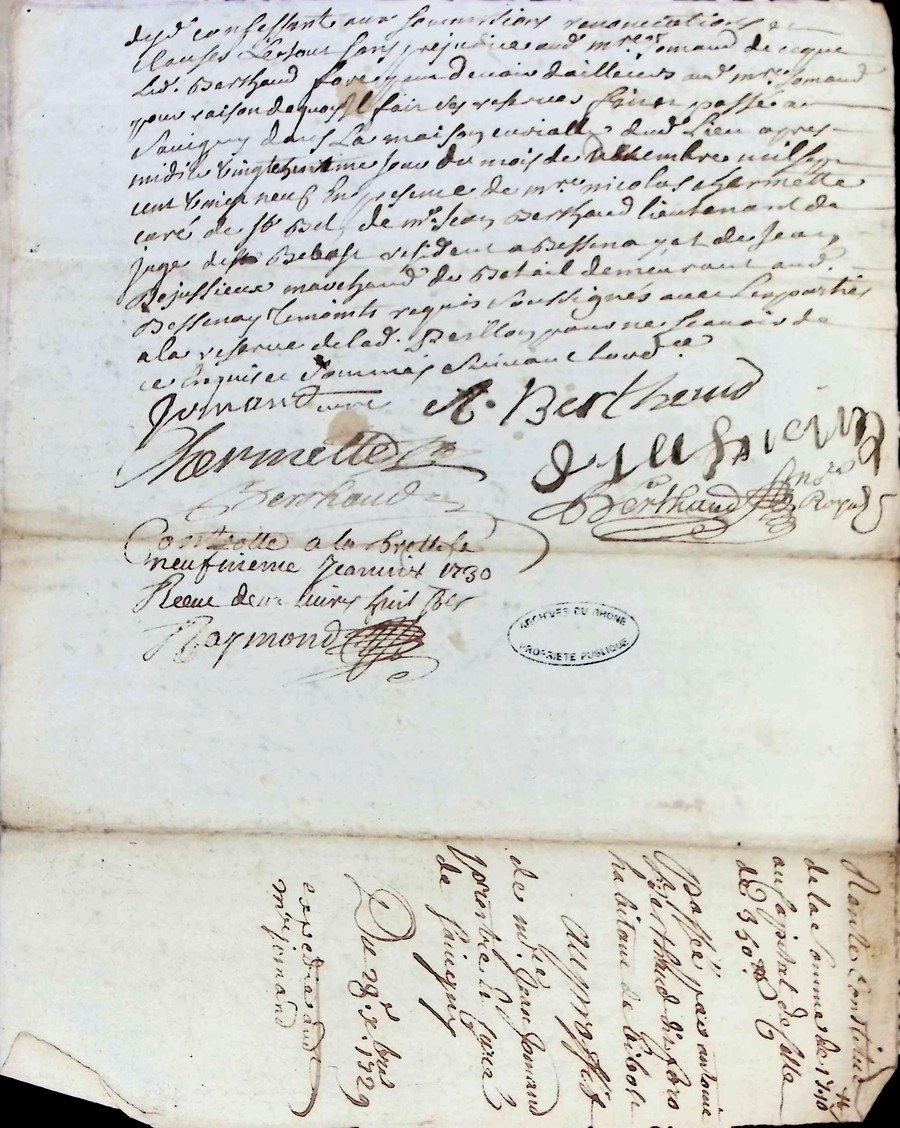 confessant aux soumissions renonciations et
Clauses Et tout sans préjudice aud. mre Jomand de ce que
Led. Berthaud devoir d'ailleurs aud. mre Jomand
pour raison dequoy Il fait ses reserves passé a
Savigny dans La maison curialle dud. Lieu apres
midi Le Vingthuitieme jour du mois de mil sept
cent Vingt neuf En presence de mre nicolas charmette
curé de St Bel, de mr Jean Berthaud lieutenant de
Juge de résident a Bessenay et de Jean
Dejussieux marchand de Betail demeurant aud.
Bessenay temoints requis soussignés avec Les parties
a la reserve de lad. pour ne scavoir de
ce Enquise et Sommée Suivant L'ord.ce
Jomand curé A. Berthaud
Charmette
Berthaud Berthaud no.re Royal
Controllé a la
neufvieme Janvier 1730
Receu deux livres huit sols
Raymond
ARCHIVES DU RHONE
PROPRIETE PUBLIQUE
Rente Constituée
de la Somme de 17# 10
au Capital de Celle
de 350#
Passé par antoine
Berthaud
habitant de
Au proffit
de mre Jean Jomand
prestre et Curé
de Savigny
Du 28e Xbre 1729
expedié aud.
mre Jomand